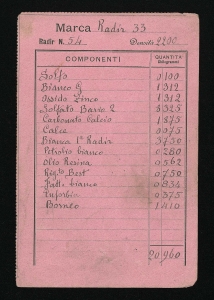 Marca Radir 33
Radir N. 54 Densità 2200
COMPONENTI QUANTITÀ
Solfo 0100
Bianco G 1.312
Ossido Zinco 1.312
Solfato Bario 2 3.325
Carbonato Calcio 1.575
Calce 0.075
Bianca 1ª Radir 3.750
Petrolio bianco 0.280
Olio Resina 0.562
0.750
Fatt. bianco 0.834
0.375
Borneo 1.410
20.960